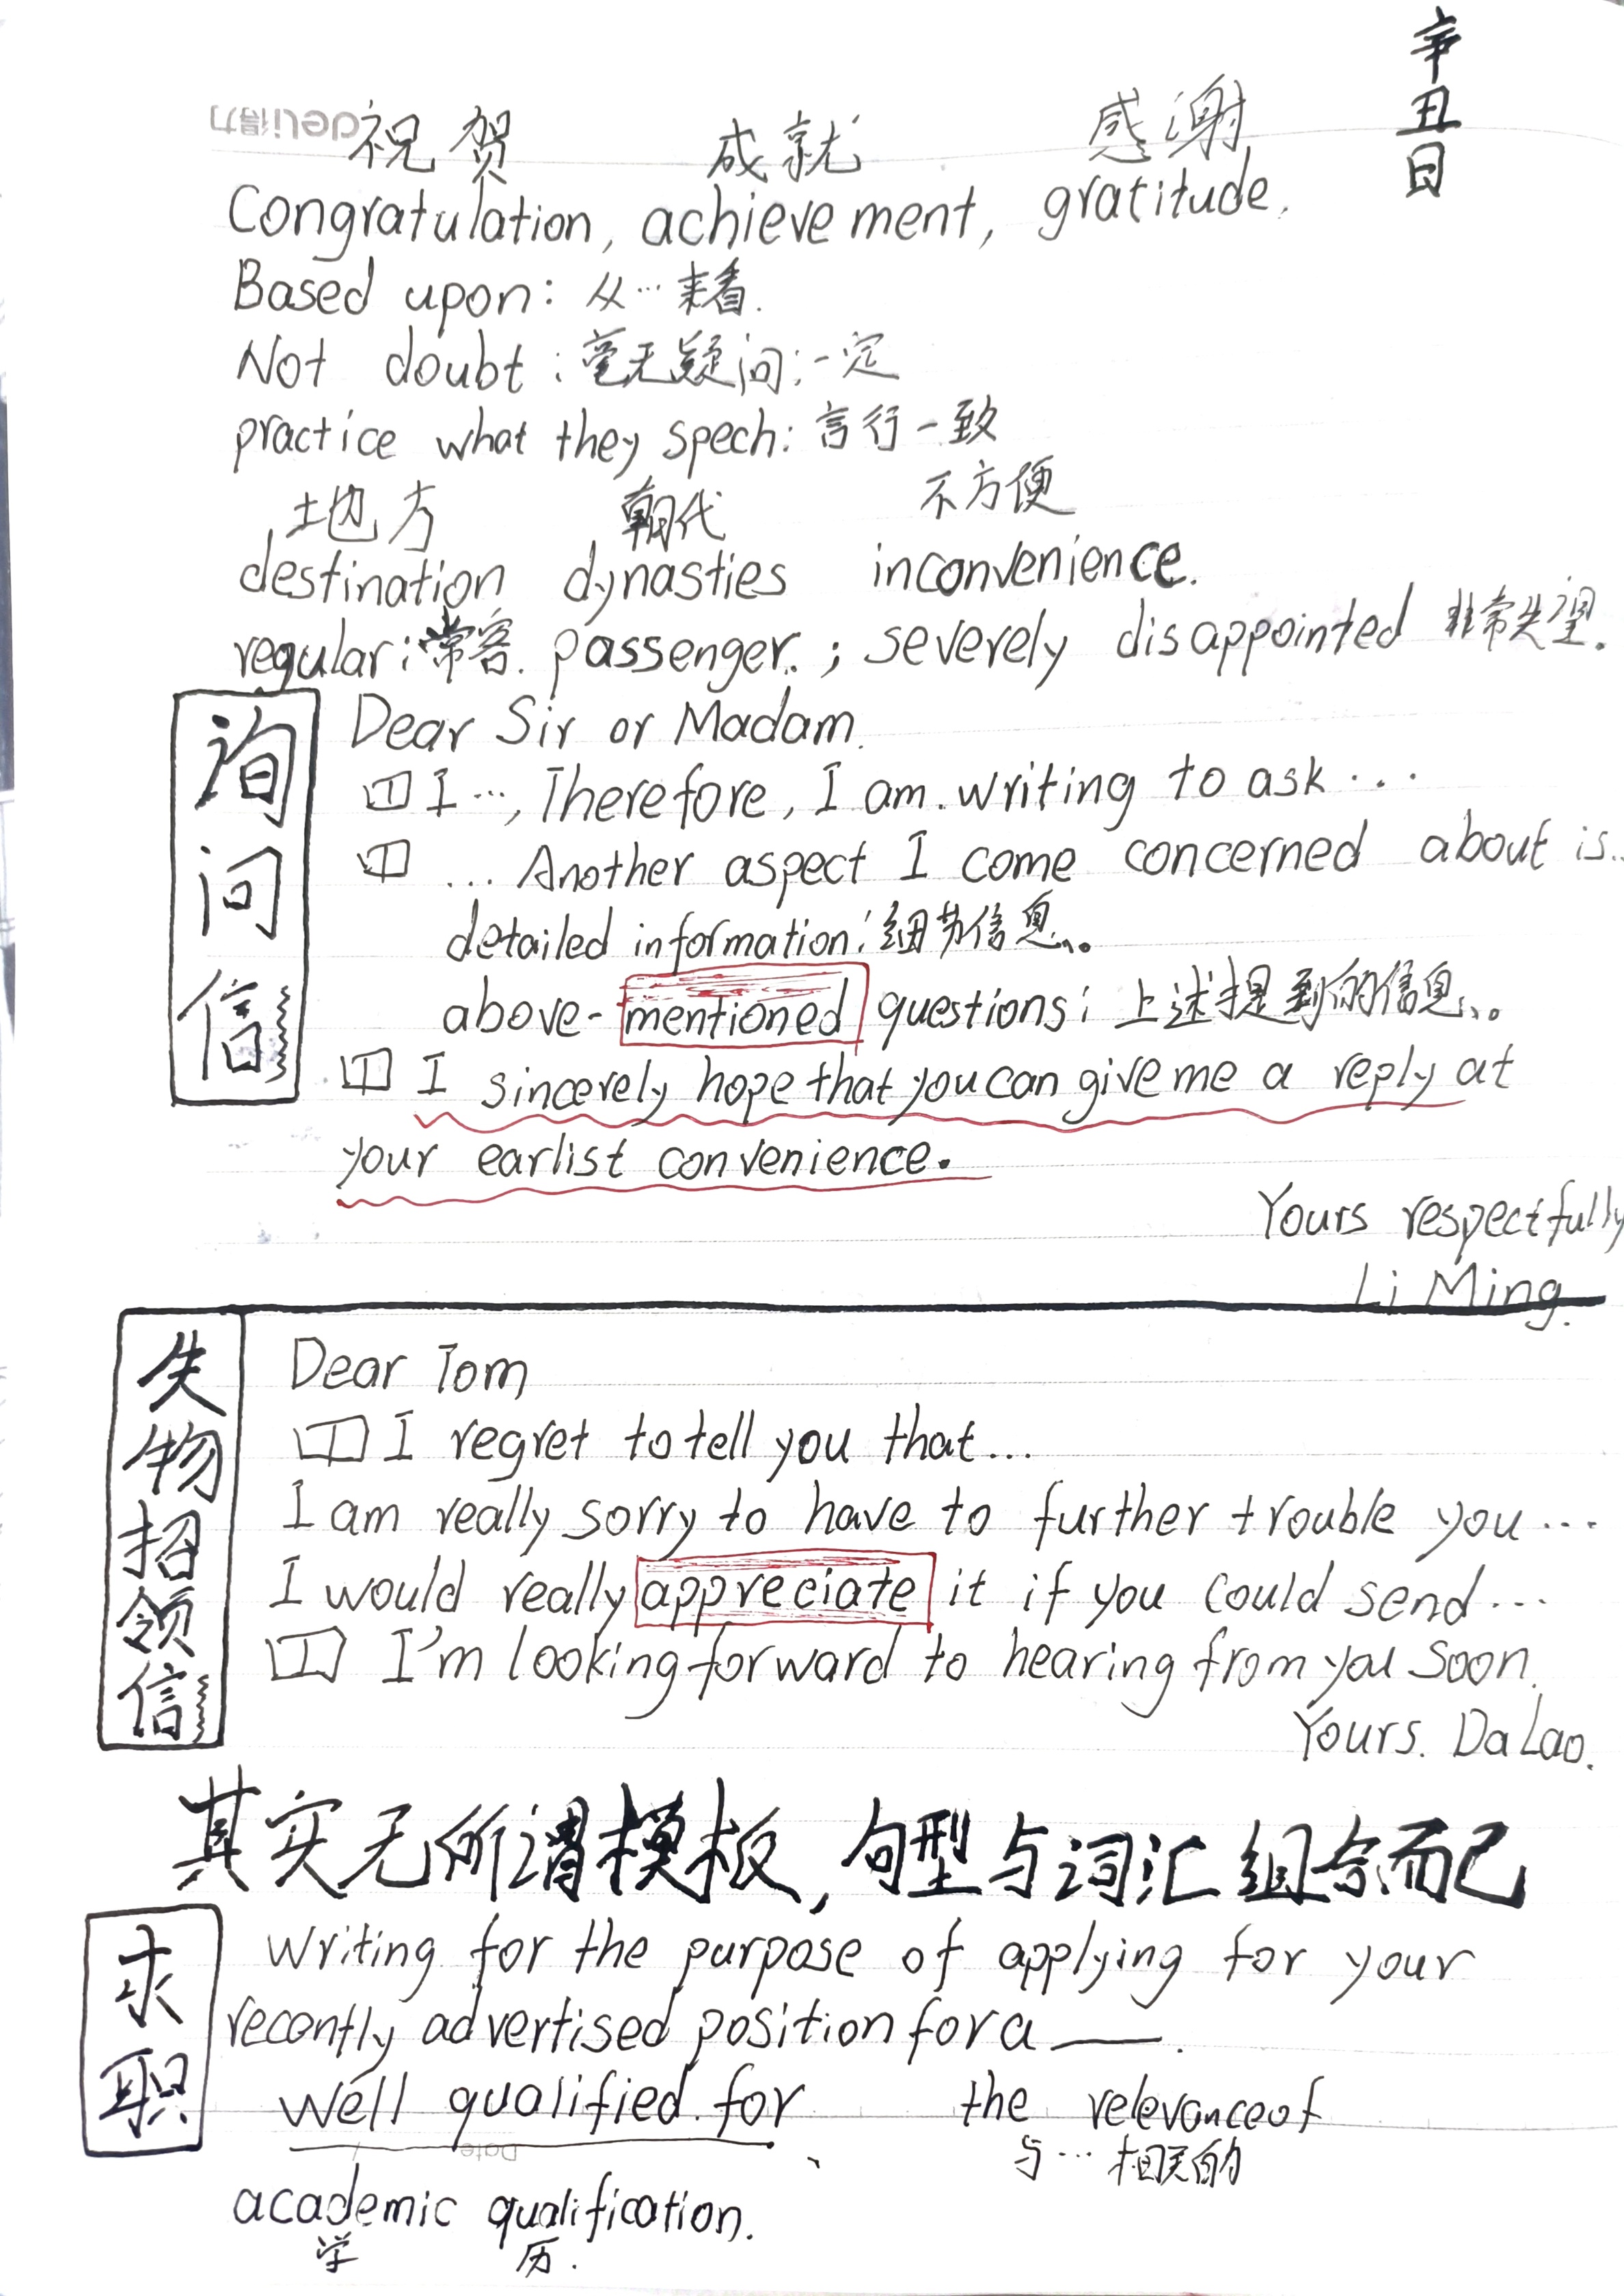 辛丑日
deli得力
祝贺 成就 感谢
Congratulation, achievement, gratitude.
Based upon: 从…来看.
Not doubt: 毫无疑问;一定
practice what they spech: 言行一致
地方 朝代 不方便
destination dynasties inconvenience.
regular: 常客. passenger.; severely disappointed 非常失望.
询问信
Dear Sir or Madam.
I …, Therefore, I am. writing to ask …
… Another aspect I come concerned about is..
detailed information: 细节信息、。
above-mentioned questions: 上述提到的信息、。
I sincerely hope that you can give me a reply at
your earlist convenience.
Yours respectfully
Li Ming.
失物招领信
Dear Tom
I regret to tell you that...
I am really sorry to have to further trouble you …
I would really appreciate it if you could send …
I'm looking forward to hearing from you soon.
Yours. Da Lao.
其实无所谓模板,句型与词汇组合而已
求职
writing for the purpose of applying for your
recently advertised position for a —.
well qualified for、 the relevance of
Date
与…相关的
academic qualification.
学 历.